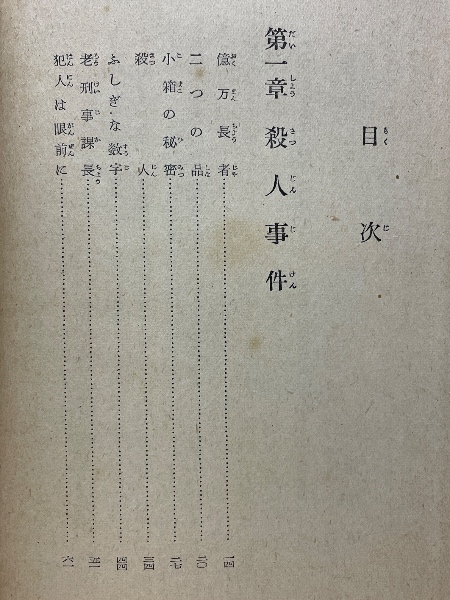 目次
第一章 殺人事件
億万長者…………一四
二つの品…………二〇
小箱の秘密…………二七
殺人…………三四
ふしぎな数字…………四四
老刑事課長…………五一
犯人は眼前に…………六一